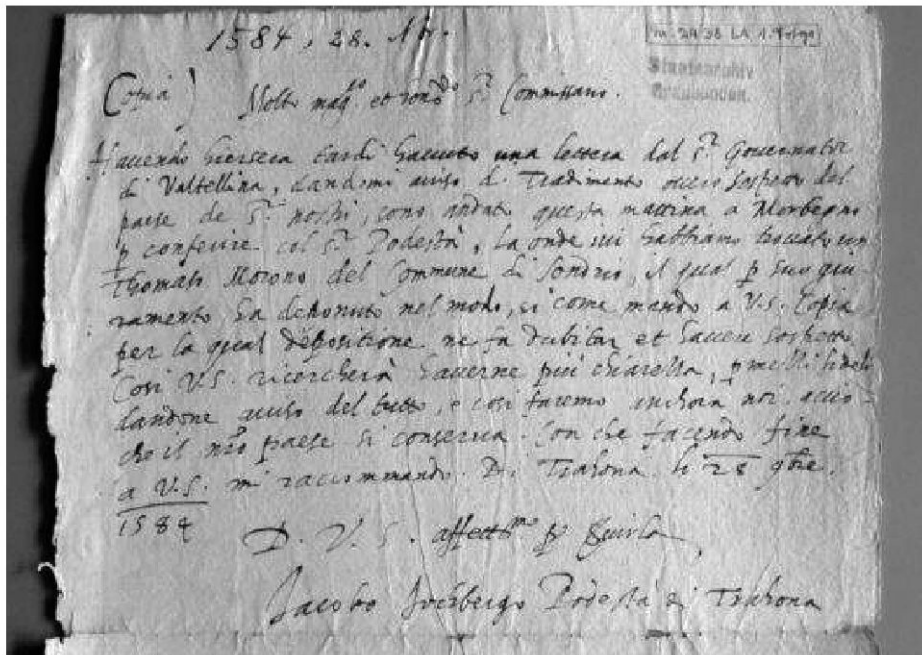 1584, 28. 
Copia) Molto mag.co et hono.do S.r Commissario.
Havendo hiersera tardi havuto una lettera dal S.r Governator
di Valtellina, dandomi aviso di Tradimento overo sospetto del
paese de S.ri nostri, sono andato questa mattina a Morbegno
p conferire col S.r Podestà, la onde vi habbiamo trovato un
Thomaso Morono del Commune di Sondrio, il qual p suo giu-
ramento ha deponuto nel modo, si come mando a V.S. Copia
per la qual depositione ne fa dubitar et haver sospetto
Cosi V.S. ricercherà haverne più chiarezza, p
dandone aviso del tutto, e cosi faremo anchora noi, accio-
che il nro paese si conserva. Con che facendo fine
a V.S. mi raccommando. Di Trahona li 28 9bre.
1584
D. V. S. affett.mo p servirla
Jacobo Podestà di Trahona
Staatsarchiv
Graubünden.